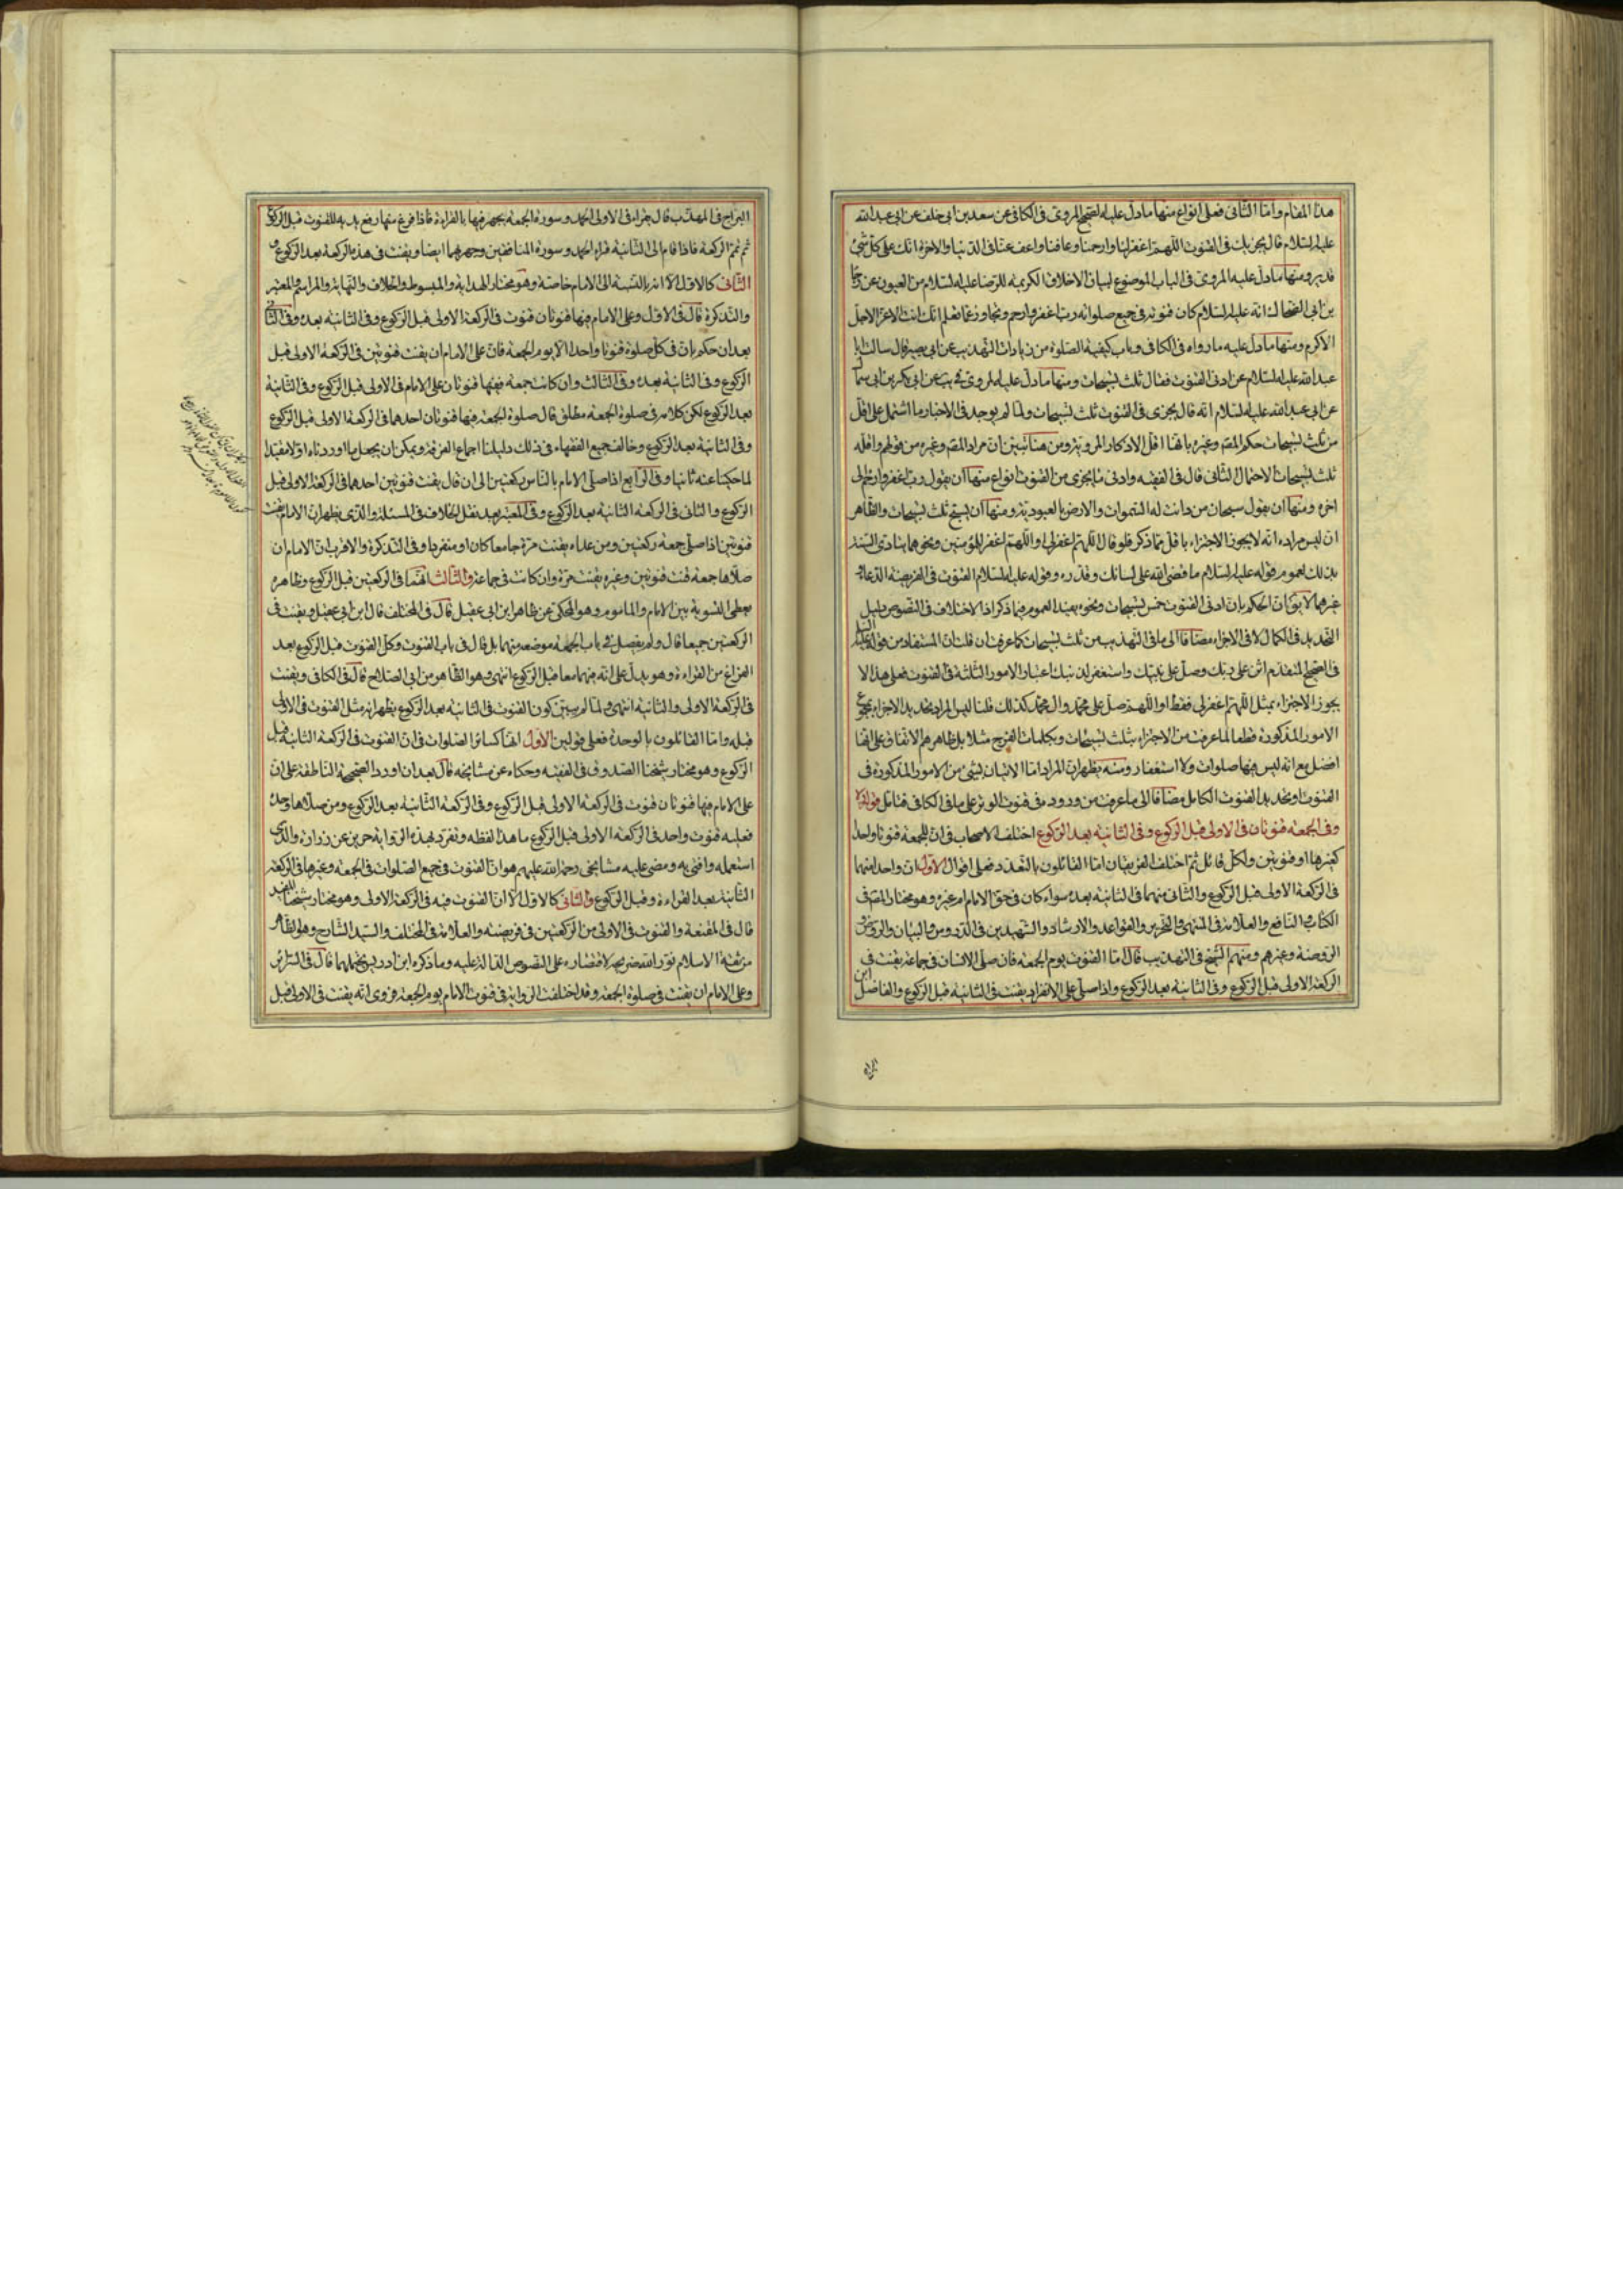 هذا المقام واما الثاني فعلى انواع منها ما دل عليه الصحيح المروى فى الكافى عن سعد بن ابى خلف عن ابى عبد الله
عليه السلام قال يجزيك فى القنوت اللهم اغفر لنا وارحمنا وعافنا واعف عنا فى الدنيا والاخرة انك على كل شئ
قدير ومنها ما دل عليه المروى فى الباب الموضوع لبيان الاخلاق الكريمة للرضا عليه السلام من العيون عن رجا
بن ابى الضحاك انه عليه السلام كان قنوته فى جميع صلواته رب اغفر وارحم وتجاوز عما تعلم انك انت الاعز الاجل
الاكرم ومنها ما دل عليه ما رواه فى الكافى وباب كيفية الصلوة من زيادات التهذيب عن ابى بصير قال سالت ابا
عبد الله عليه السلام عن ادنى القنوت فقال ثلث تسبيحات ومنها ما دل عليه المروى فى يب عن ابى بكر بن ابى سما
عن ابى عبد الله عليه السلام انه قال يجزى فى القنوت ثلث تسبيحات ولما لم يوجد فى الاخبار ما اشتمل على اقل
من ثلث تسبيحات حكم المص وغيره بانها اقل الاذكار المروية ومن هنا تبين ان مراد المص وغيره من قولهم واقله
ثلث تسبيحات الاحتمال الثانى قال فى الفقيه وادنى ما يجزى من القنوت انواع منها ان يقول رب اغفر وارحم الى
اخره ومنها ان يقول سبحان من دانت له السموات والارض بالعبودية ومنها ان يسبح ثلث تسبيحات والظاهر
ان ليس مراده انه لا يجوز الاجتزاء باقل مما ذكر فلو قال اللهم اغفر لى او اللهم اغفر للمؤمنين ونحوهما يتادى السنة
بذلك لعموم قوله عليه السلام ما قضى الله على لسانك وقدره وقوله عليه السلام القنوت فى الفريضة الدعاء
غيرهما لا يق ان الحكم بان ادنى القنوت خمس تسبيحات ونحوه يقيد العموم فيما ذكر اذ الاختلاف فى النصوص دليل
التحديد فى الكمال لا فى الاجزاء مضافا الى ما فى التهذيب من ثلث تسبيحات كما عرفت ان قلت ان المستفاد من قوله عليه السلم
فى الصحيح المتقدم اثن على ربك وصل على نبيك واستغفر لذنبك اعتبار الامور الثلثة فى القنوت فعلى هذا لا
يجوز الاجتزاء بمثل اللهم اغفر لى فقط او اللهم صل على محمد وال محمد كذلك قلنا ليس المراد تحديد الاجزاء بمجموع
الامور المذكورة قطعا لما عرفت من الاجتزاء بثلث تسبيحات وبكلمات الفرج مثلا بل ظاهرهم الاتفاق على انها
افضل مع انه ليس فيها صلوات ولا استغفار ومنه يظهر ان المراد اما الاتيان بشئ من الامور المذكورة فى
القنوت او تحديد القنوت الكامل مضافا الى ما عرفت من وروده فى قنوت الوتر على ما فى الكافى فتامل قوله
وفى الجمعة قنوتان فى الاولى قبل الركوع وفى الثانية بعد الركوع اختلف الاصحاب فى ان للجمعة قنوتا واحدا
كغيرها او قنوتين ولكل قائل ثم اختلف الفريقان اما القائلون بالتعدد فعلى اقوال الاول ان واحدا منهما
فى الركعة الاولى قبل الركوع والثانى منهما فى الثانية بعده سواء كان فى حق الامام ام غيره وهو مختار المص فى
الكتاب النافع والعلامة فى المنتهى والتحرير والقواعد والارشاد والشهيدين فى الدروس والبيان والروض و
الروضة وغيرهم ومنهم الشيخ فى التهذيب قال اما القنوت يوم الجمعة فان صلى الانسان فى جماعة يقنت فى
الركعة الاولى قبل الركوع وفى الثانية بعد الركوع واذا صلى على الانفراد يقنت فى الثانية قبل الركوع والفاضل ابن
البراج
البراج فى المهذب قال يقراء فى الاولى الحمد وسورة الجمعة يجهر فيها بالقراءة فاذا فرغ منها رفع يديه للقنوت قبل الركوع
ثم تمم الركعة فاذا قام الى الثانية قراء الحمد وسورة المنافقين وجهر بهما ايضا ويقنت فى هذه الركعة بعد الركوع و
الثانى كالاول الا انه بالنسبة الى الامام خاصة وهو مختار الهداية والمبسوط والخلاف والنهاية والمراسم والمعتبر
والتذكرة قال فى الاول وعلى الامام فيها قنوتان قنوت فى الركعة الاولى قبل الركوع وفى الثانية بعده وفى الثانى
بعد ان حكم بان فى كل صلوة قنوتا واحدا الا يوم الجمعة فان على الامام ان يقنت قنوتين فى الركعة الاولى قبل
الركوع وفى الثانية بعده وفى الثالث وان كانت جمعة ففيها قنوتان على الامام فى الاولى قبل الركوع وفى الثانية
بعد الركوع لكن كلامه فى صلوة الجمعة مطلق قال صلوة الجمعة فيها قنوتان احدهما فى الركعة الاولى قبل الركوع
وفى الثانية بعد الركوع وخالف جميع الفقهاء فى ذلك دليلنا اجماع الفرقة ويمكن ان يجعل ما اوردناه اولا مقيدا
لما حكينا عنه ثانيا وفى الرابع اذا صلى الامام بالناس ركعتين الى ان قال يقنت قنوتين احدهما فى الركعة الاولى قبل
الركوع والثانى فى الركعة الثانية بعد الركوع وفى المعتبر بعد نقل الخلاف فى المسئلة والذى يظهر ان الامام يقنت
قنوتين اذا صلى جمعة ركعتين ومن عداه يقنت مرة جامعا كان او منفردا وفى التذكرة والاقرب ان الامام ان
صلاها جمعة قنت قنوتين وغيره يقنت مرة وان كانت فى جماعة والثالث انهما فى الركعتين قبل الركوع وظاهره
يعطى التسوية بين الامام والماموم وهو المحكى عن ظاهر ابن ابى عقيل قال فى المختلف قال ابن ابى عقيل ويقنت فى
الركعتين جميعا قال ولم يفصل فى باب الجمعة موضعه منهما بل قال فى باب القنوت وكل القنوت قبل الركوع بعد
الفراغ من القراءة وهو يدل على انه فيهما معا قبل الركوع انتهى وهو الظاهر من ابى الصلاح قال فى الكافى ويقنت
فى الركعة الاولى والثانية انتهى ولما لم يبين كون القنوت فى الثانية بعد الركوع يظهر انه مثل القنوت فى الاولى
قبله واما القائلون بالوحدة فعلى قولين الاول انها كسائر الصلوات فى ان القنوت فى الركعة الثانية قبل
الركوع وهو مختار شيخنا الصدوق فى الفقيه وحكاه عن مشايخه قال بعد ان اورد الصحيحة الناطقة على ان
على الامام فيها قنوتان قنوت فى الركعة الاولى قبل الركوع وفى الركعة الثانية بعد الركوع ومن صلاها وحده
فعليه قنوت واحد فى الركعة الاولى قبل الركوع ما هذا لفظه وتفرد بهذه الرواية حريز عن زرارة والذى
استعمله وافتى به ومضى عليه مشايخى رحمة الله عليهم هو ان القنوت فى جميع الصلوات فى الجمعة وغيرها فى الركعة
الثانية بعد القراءة وقبل الركوع والثانى كالاول الا ان القنوت فيه فى الركعة الاولى وهو مختار شيخنا المفيد
قال فى المقنعة والقنوت فى الاولى من الركعتين فى فريضته والعلامة فى المختلف والسيد الشارح وهو الظاهر
من ثقة الاسلام نور الله ضريحه لاقتصاره على النصوص الدالة عليه وما ذكره ابن ادريس يحتملهما قال فى السرائر
وعلى الامام ان يقنت فى صلوة الجمعة وقد اختلفت الرواية فى قنوت الامام يوم الجمعة فروى انه يقنت فى الاولى قبل